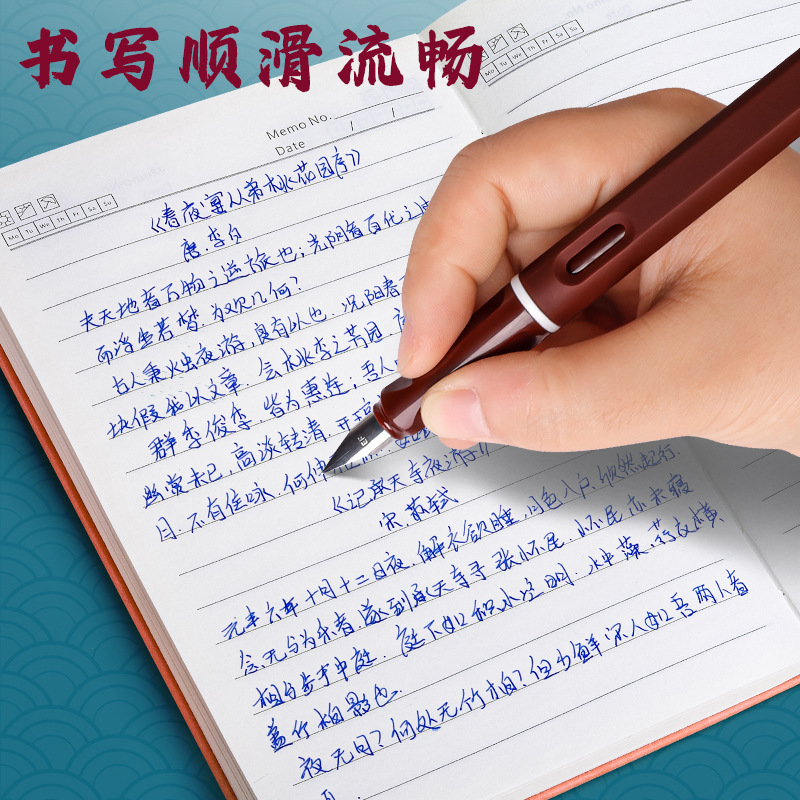 书写顺滑流畅
Memo No.
Date / /
Mo Tu We Th Fr Sa Su
Mo Tu We Th Fr Sa Su
《春夜宴从弟桃花园序》
唐·李白
夫天地者万物之逆旅也；光阴者百代之过
而浮生若梦，为欢几何？
古人秉烛夜游，良有以也．况阳春
块假我以文章．会桃李之芳园，
群季俊秀，皆为惠连；吾人
幽赏未已，高谈转清．开
日．不有佳咏，何伸
《记承天寺夜游》
宋 苏轼
元丰六年十月十二日夜．解衣欲睡，月色入户，欣然起行．
念无与为乐者．遂到承天寺寻张怀民．怀民亦未寝
相与步于中庭．庭下如积水空明．水中藻、荇交横
盖竹柏影也．
夜无月？何处无竹柏？但少闲人如吾两人者